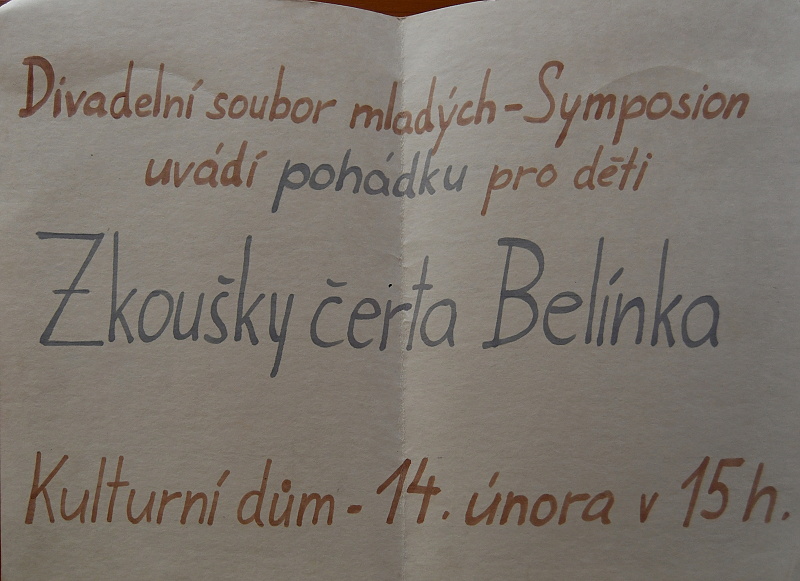 Divadelní soubor mladých - Symposion
uvádí pohádku pro děti
Zkoušky čerta Belínka
Kulturní dům - 14. února v 15 h.